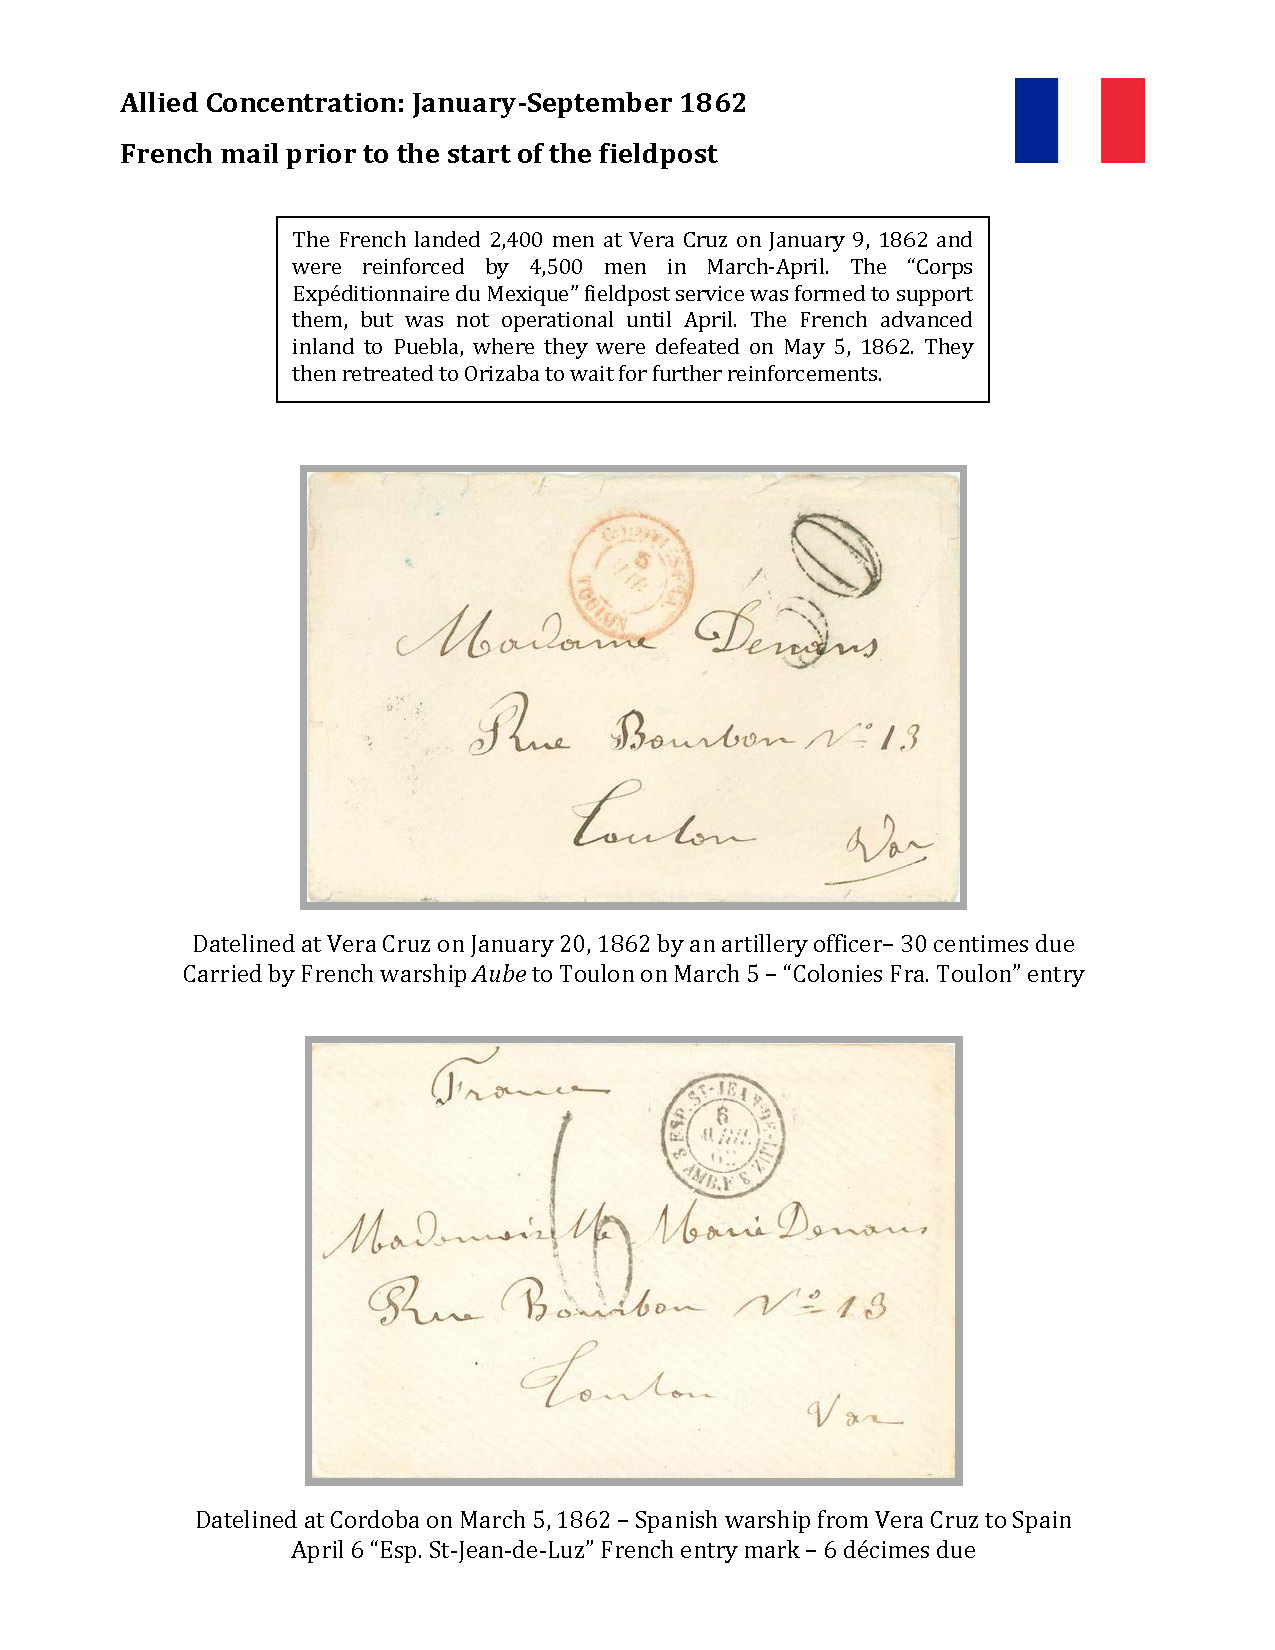 Allied Concentration: January-September 1862
French mail prior to the start of the fieldpost
The French landed 2,400 men at Vera Cruz on January 9, 1862 and
were reinforced by 4,500 men in March-April. The “Corps
Expéditionnaire du Mexique” fieldpost service was formed to support
them, but was not operational until April. The French advanced
inland to Puebla, where they were defeated on May 5, 1862. They
then retreated to Orizaba to wait for further reinforcements.
5
TOULON
Madame Denans
Rue Bourbon No 13
Toulon
Var
Datelined at Vera Cruz on January 20, 1862 by an artillery officer– 30 centimes due
Carried by French warship Aube to Toulon on March 5 – “Colonies Fra. Toulon” entry
France
3 ESP. ST-JEAN-DE-LUZ 3
6
AVRIL
62
AMB. F
6
Mademoiselle Marie Denans
Rue Bourbon No 13
Toulon
Var
Datelined at Cordoba on March 5, 1862 – Spanish warship from Vera Cruz to Spain
April 6 “Esp. St-Jean-de-Luz” French entry mark – 6 décimes due